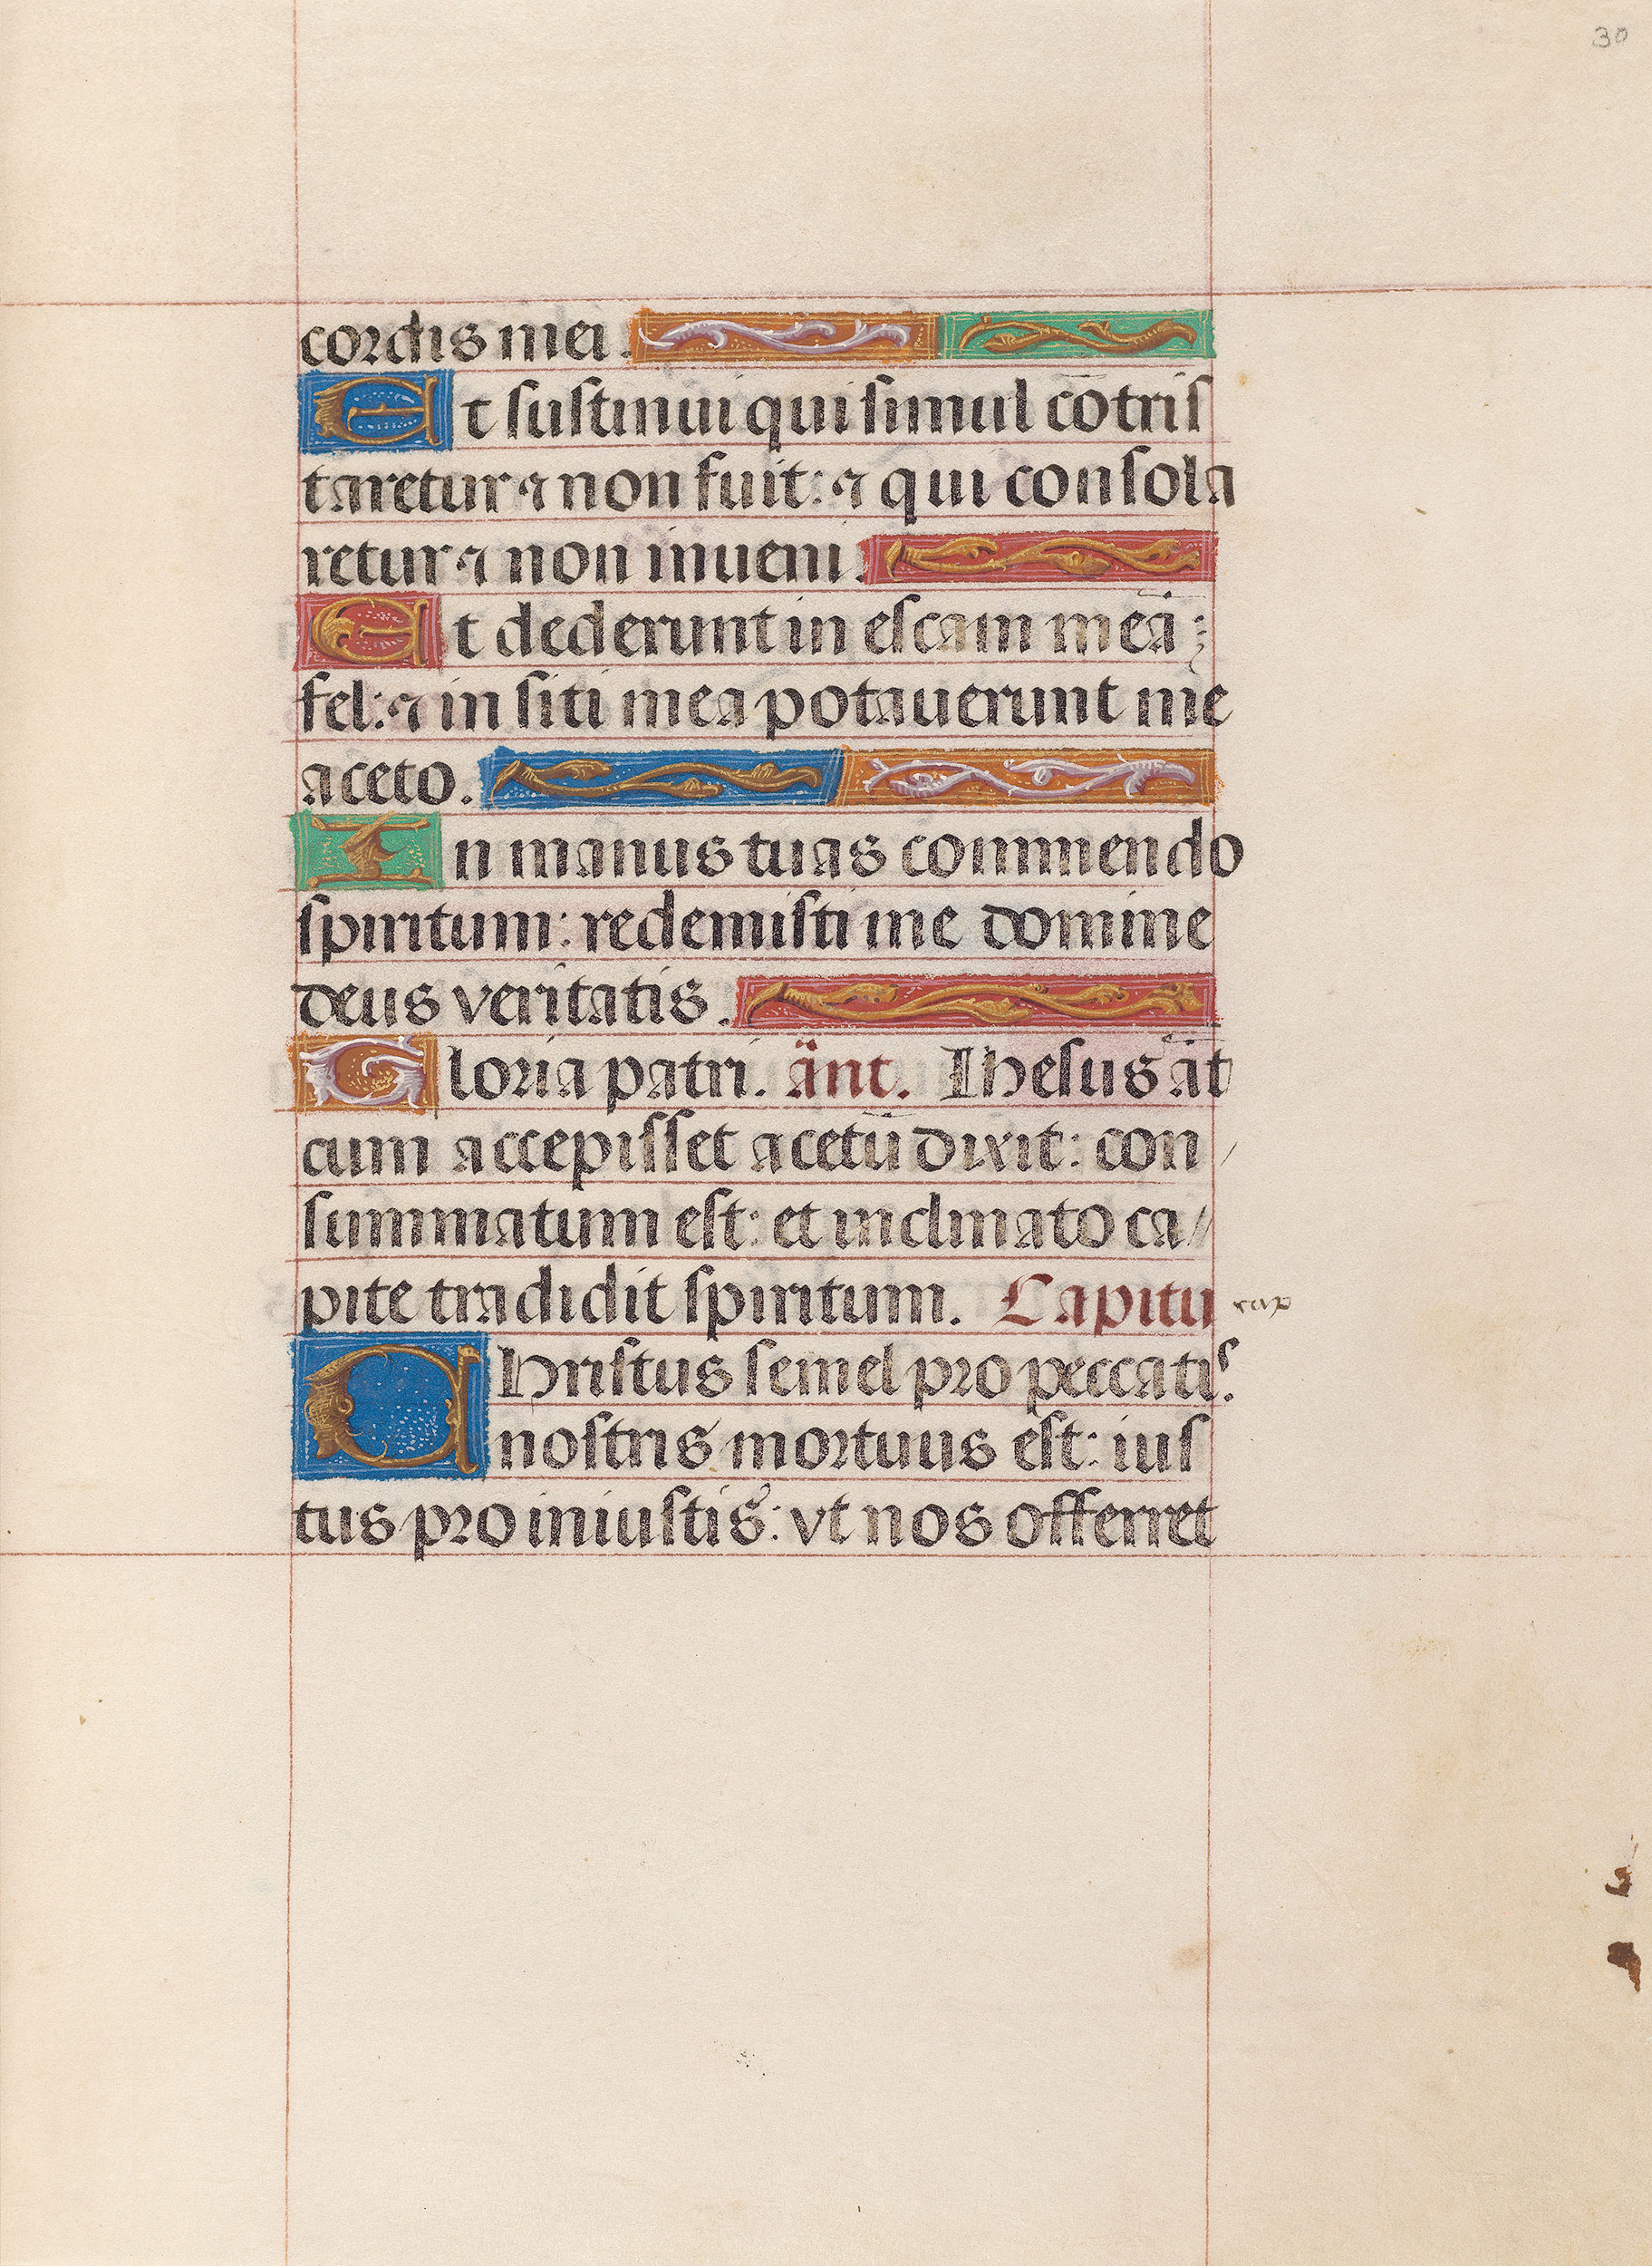 30
cordis mei.
Et sustinui qui simul cōtris
taretur ⁊ non fuit: ⁊ qui consola
retur ⁊ non inueni.
Et dederunt in escam meā
fel: ⁊ in siti mea potauerunt me
aceto.
In manus tuas commendo
spiritum: redemisti me domine
deus veritatis.
Gloria patri. ant. Ihesus āt
cum accepisset acetū dixit: con
summatum est: et inclinato ca//
pite tradidit spiritum. Capitu
cap
Christus semel pro peccatis.
nostris mortuus est: ius
tus pro iniustis: vt nos offerret